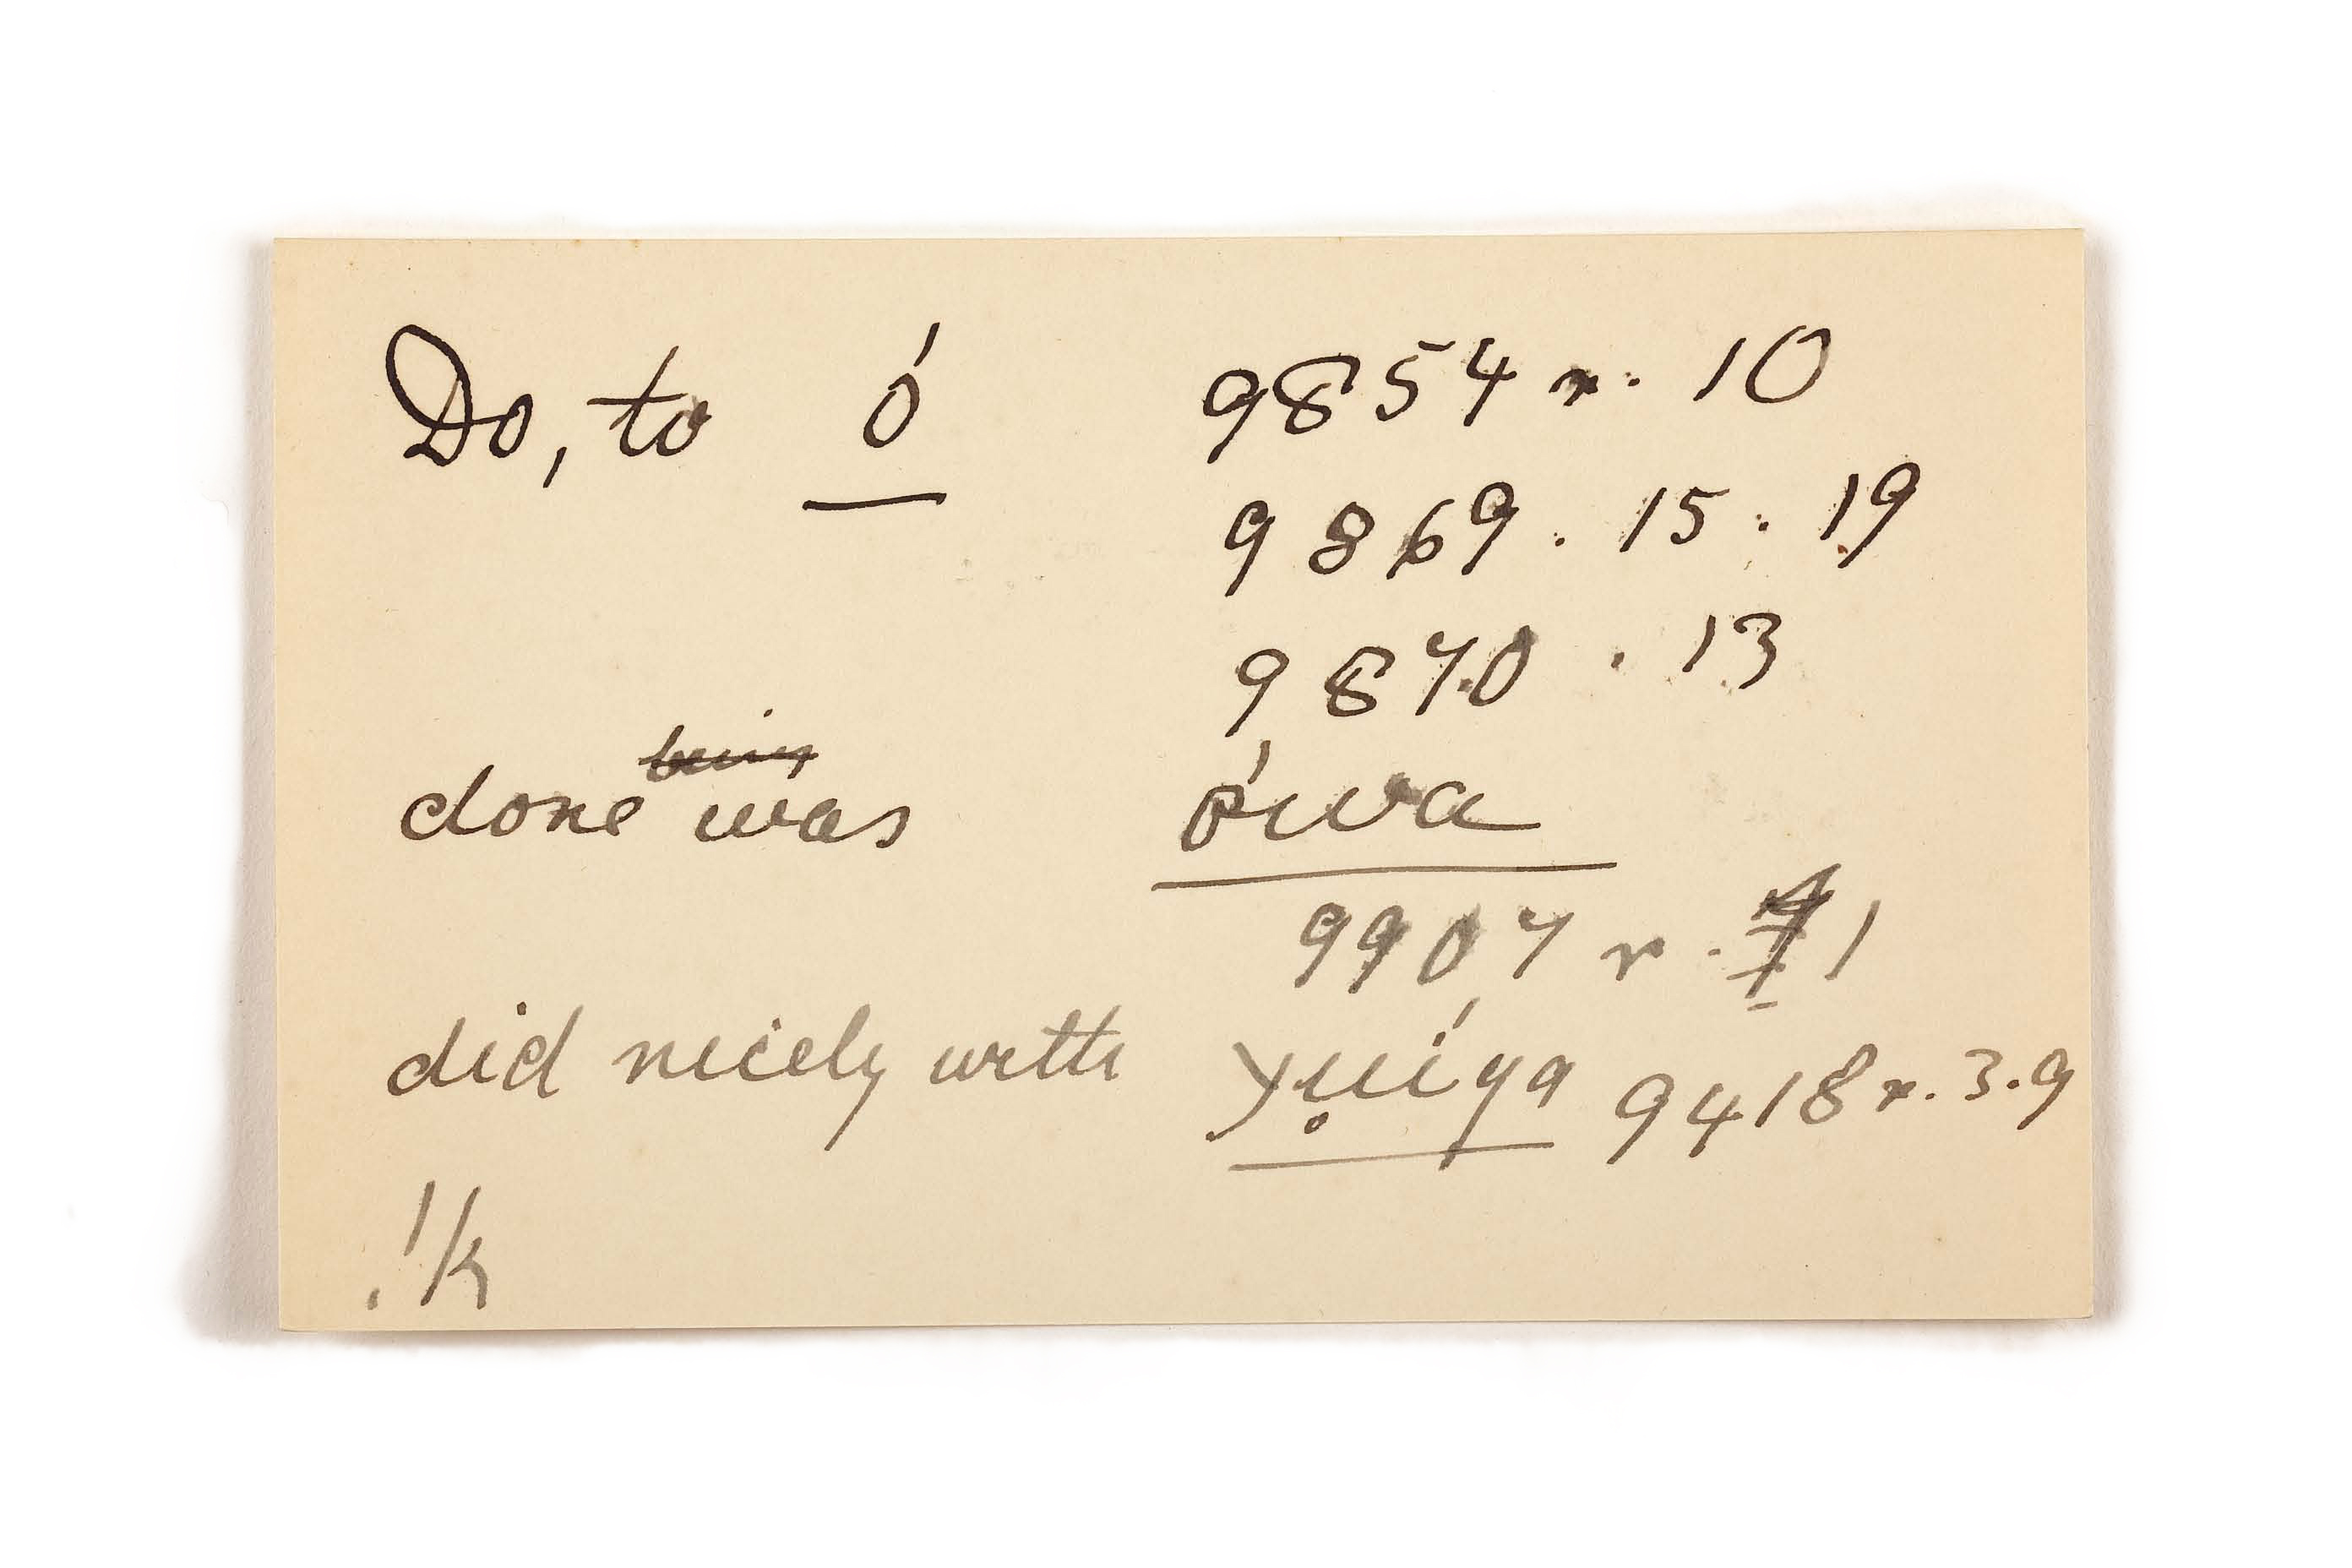 Do, to ó 9854 r. 10
9869 . 15 . 19
9870 . 13
being
done was óiwa
9907 r . 1
did nicely with 9418 r. 3.9